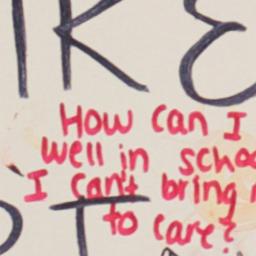 IKE
How can I
well in
I can't bring
to care?